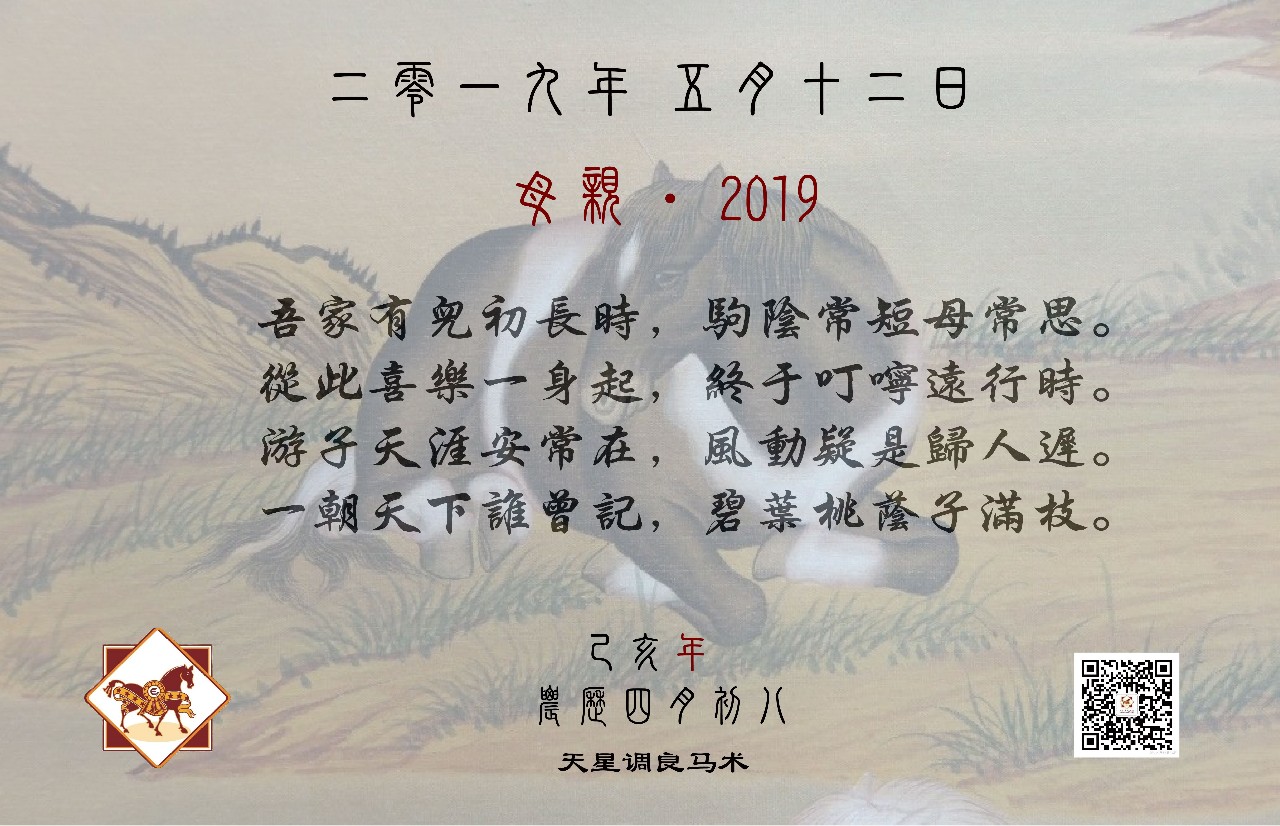 二零一九年 五月十二日
母親·2019
吾家有兒初長時，駒陰常短母常思。
從此喜樂一身起，終于叮嚀遠行時。
游子天涯安常在，風動疑是歸人遲。
一朝天下誰曾記，碧葉桃蔭子滿枝。
己亥年
農歷四月初八
天星调良马术